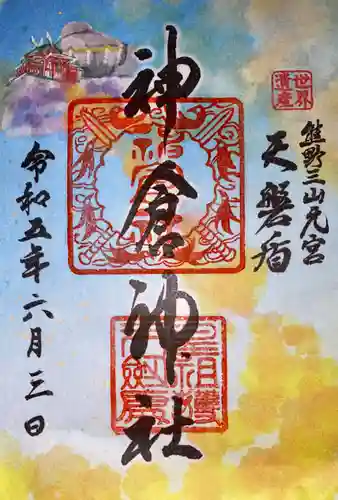 世界
遺産
熊野三山元宮
天磐盾
神倉神社
令和五年六月三日